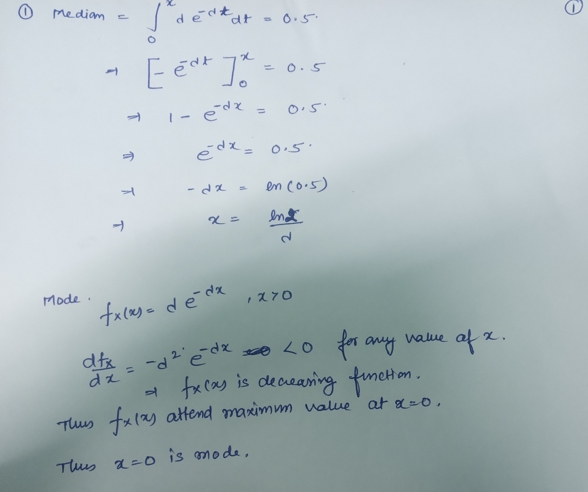 ① Median = ∫₀ˣ d e^{-dt} dt = 0.5. ①
⇒ [-e^{-dt}]₀ˣ = 0.5
⇒ 1 - e^{-dx} = 0.5.
⇒ e^{-dx} = 0.5.
⇒ -dx = ln(0.5)
⇒ x = ln2/d
Mode. fx(x) = d e^{-dx}, x>0
dfx/dx = -d² e^{-dx} <0 for any value of x.
⇒ fx(x) is decreasing function.
Thus fx(x) attend maximum value at x=0.
Thus x=0 is mode.